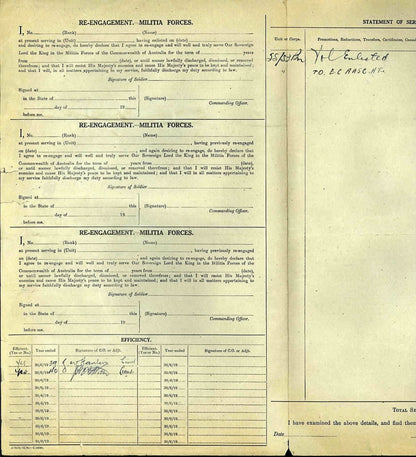 RE-ENGAGEMENT. MILITIA FORCES.
I, No. (Rank) (Name)
at present serving in (Unit) having enlisted on (date)
and desiring to re-engage, do hereby declare that I agree to re-engage and will well and truly serve Our Sovereign
Lord the King in the Militia Forces of the Commonwealth of Australia for the term of years from
(date), or until sooner lawfully discharged, dismissed, or removed
therefrom; and that I will resist His Majesty's enemies and cause His Majesty's peace to be kept and maintained;
and that I will in all matters appertaining to my service, faithfully discharge my duty according to law.
Signature of Soldier
Signed at
in the State of this (Signature)
day of 19 Commanding Officer.
before me.
RE-ENGAGEMENT. MILITIA FORCES.
I, No. (Rank) (Name)
at present serving in (Unit) , having previously re-engaged
on (date) , and again desiring to re-engage, do hereby declare that
I agree to re-engage and will well and truly serve Our Sovereign Lord the King in the Militia Forces of the
Commonwealth of Australia for the term of years from (date)
or until sooner lawfully discharged, dismissed, or removed therefrom; and that I will resist His Majesty's
enemies and cause His Majesty's peace to be kept and maintained; and that I will in all matters appertaining to
my service faithfully discharge my duty according to law.
Signature of Soldier
Signed at
in the State of this (Signature)
day of 19 Commanding Officer.
before me.
RE-ENGAGEMENT. MILITIA FORCES.
I, No. (Rank) (Name)
at present serving in (Unit) , having previously re-engaged
on (date) , and again desiring to re-engage, do hereby declare that
I agree to re-engage and will well and truly serve Our Sovereign Lord the King in the Militia Forces of the
Commonwealth of Australia for the term of years from (date)
or until sooner lawfully discharged, dismissed, or removed therefrom; and that I will resist His Majesty's
enemies and cause His Majesty's peace to be kept and maintained; and that I will in all matters appertaining to
my service faithfully discharge my duty according to law.
Signature of Soldier
Signed at
in the State of this (Signature)
day of 19 Commanding Officer.
before me.
EFFICIENCY.
Efficient. (Yes or No.) Year ended Signature of C.O. or Adjt. Efficient. (Yes or No.) Year ended Signature of C.O. or Adjt.
Yes 30/6/19 39
Yes 30/6/19 40
30/6/19 30/6/19
30/6/19 30/6/19
30/6/19 30/6/19
30/6/19 30/6/19
30/6/19 30/6/19
30/6/19 30/6/19
STATEMENT OF SER
Unit or Corps. Promotions, Reductions, Transfers, Casualties,
Vol Enlisted
TOTAL SE
I have examined the above details, and find them
Date